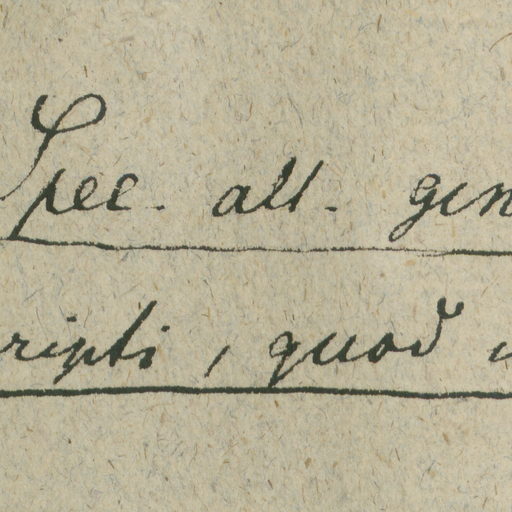 Spec. alt. gen
ripti, quod